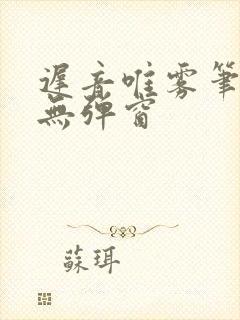 遲音唯雾筆
無弹窗
蘇珥